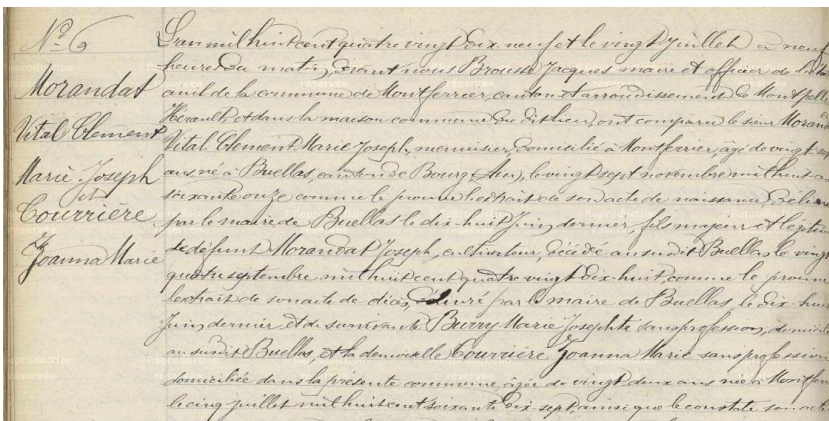 No 6
Morandat
Vital Clement
Marie Joseph
et
Courrière
Joanna Marie
L'an mil huit cent quatre vingt dix-neuf et le vingt Juillet à neuf
heures du matin, devant nous Brousse Jacques maire et officier de l'état
civil de la commune de Montferrier, canton et arrondissement de Montpell
Hérault et dans la maison commune du dit lieu, ont comparu le sieur Morand
Vital Clement Marie Joseph, menuisier, domicilié à Montferrier, âgé de vingt
ans né à Buellas, canton de Bourg (Ain), le vingt sept novembre mil huit
soixante onze comme le prouve l'extrait de son acte de naissance, délivré
par le maire de Buellas le dix-huit Juin dernier, fils majeur et légitime
de défunt Morandat Joseph, cultivateur, décédé au susdit Buellas le vingt
quatre septembre mil huit cent quatre vingt dix-huit, comme le prouve
l'extrait de son acte de décès, délivré par le maire de Buellas, le dix-huit
Juin dernier et de survivante Burry Marie Josephte sans profession, domicili
au susdit Buellas, et la demoiselle Courrière Joanna Marie sans profession
domiciliée dans la présente commune, âgée de vingt deux ans née à Montferr
le cinq Juillet mil huit cent soixante dix-sept, ainsi que le constate son acte